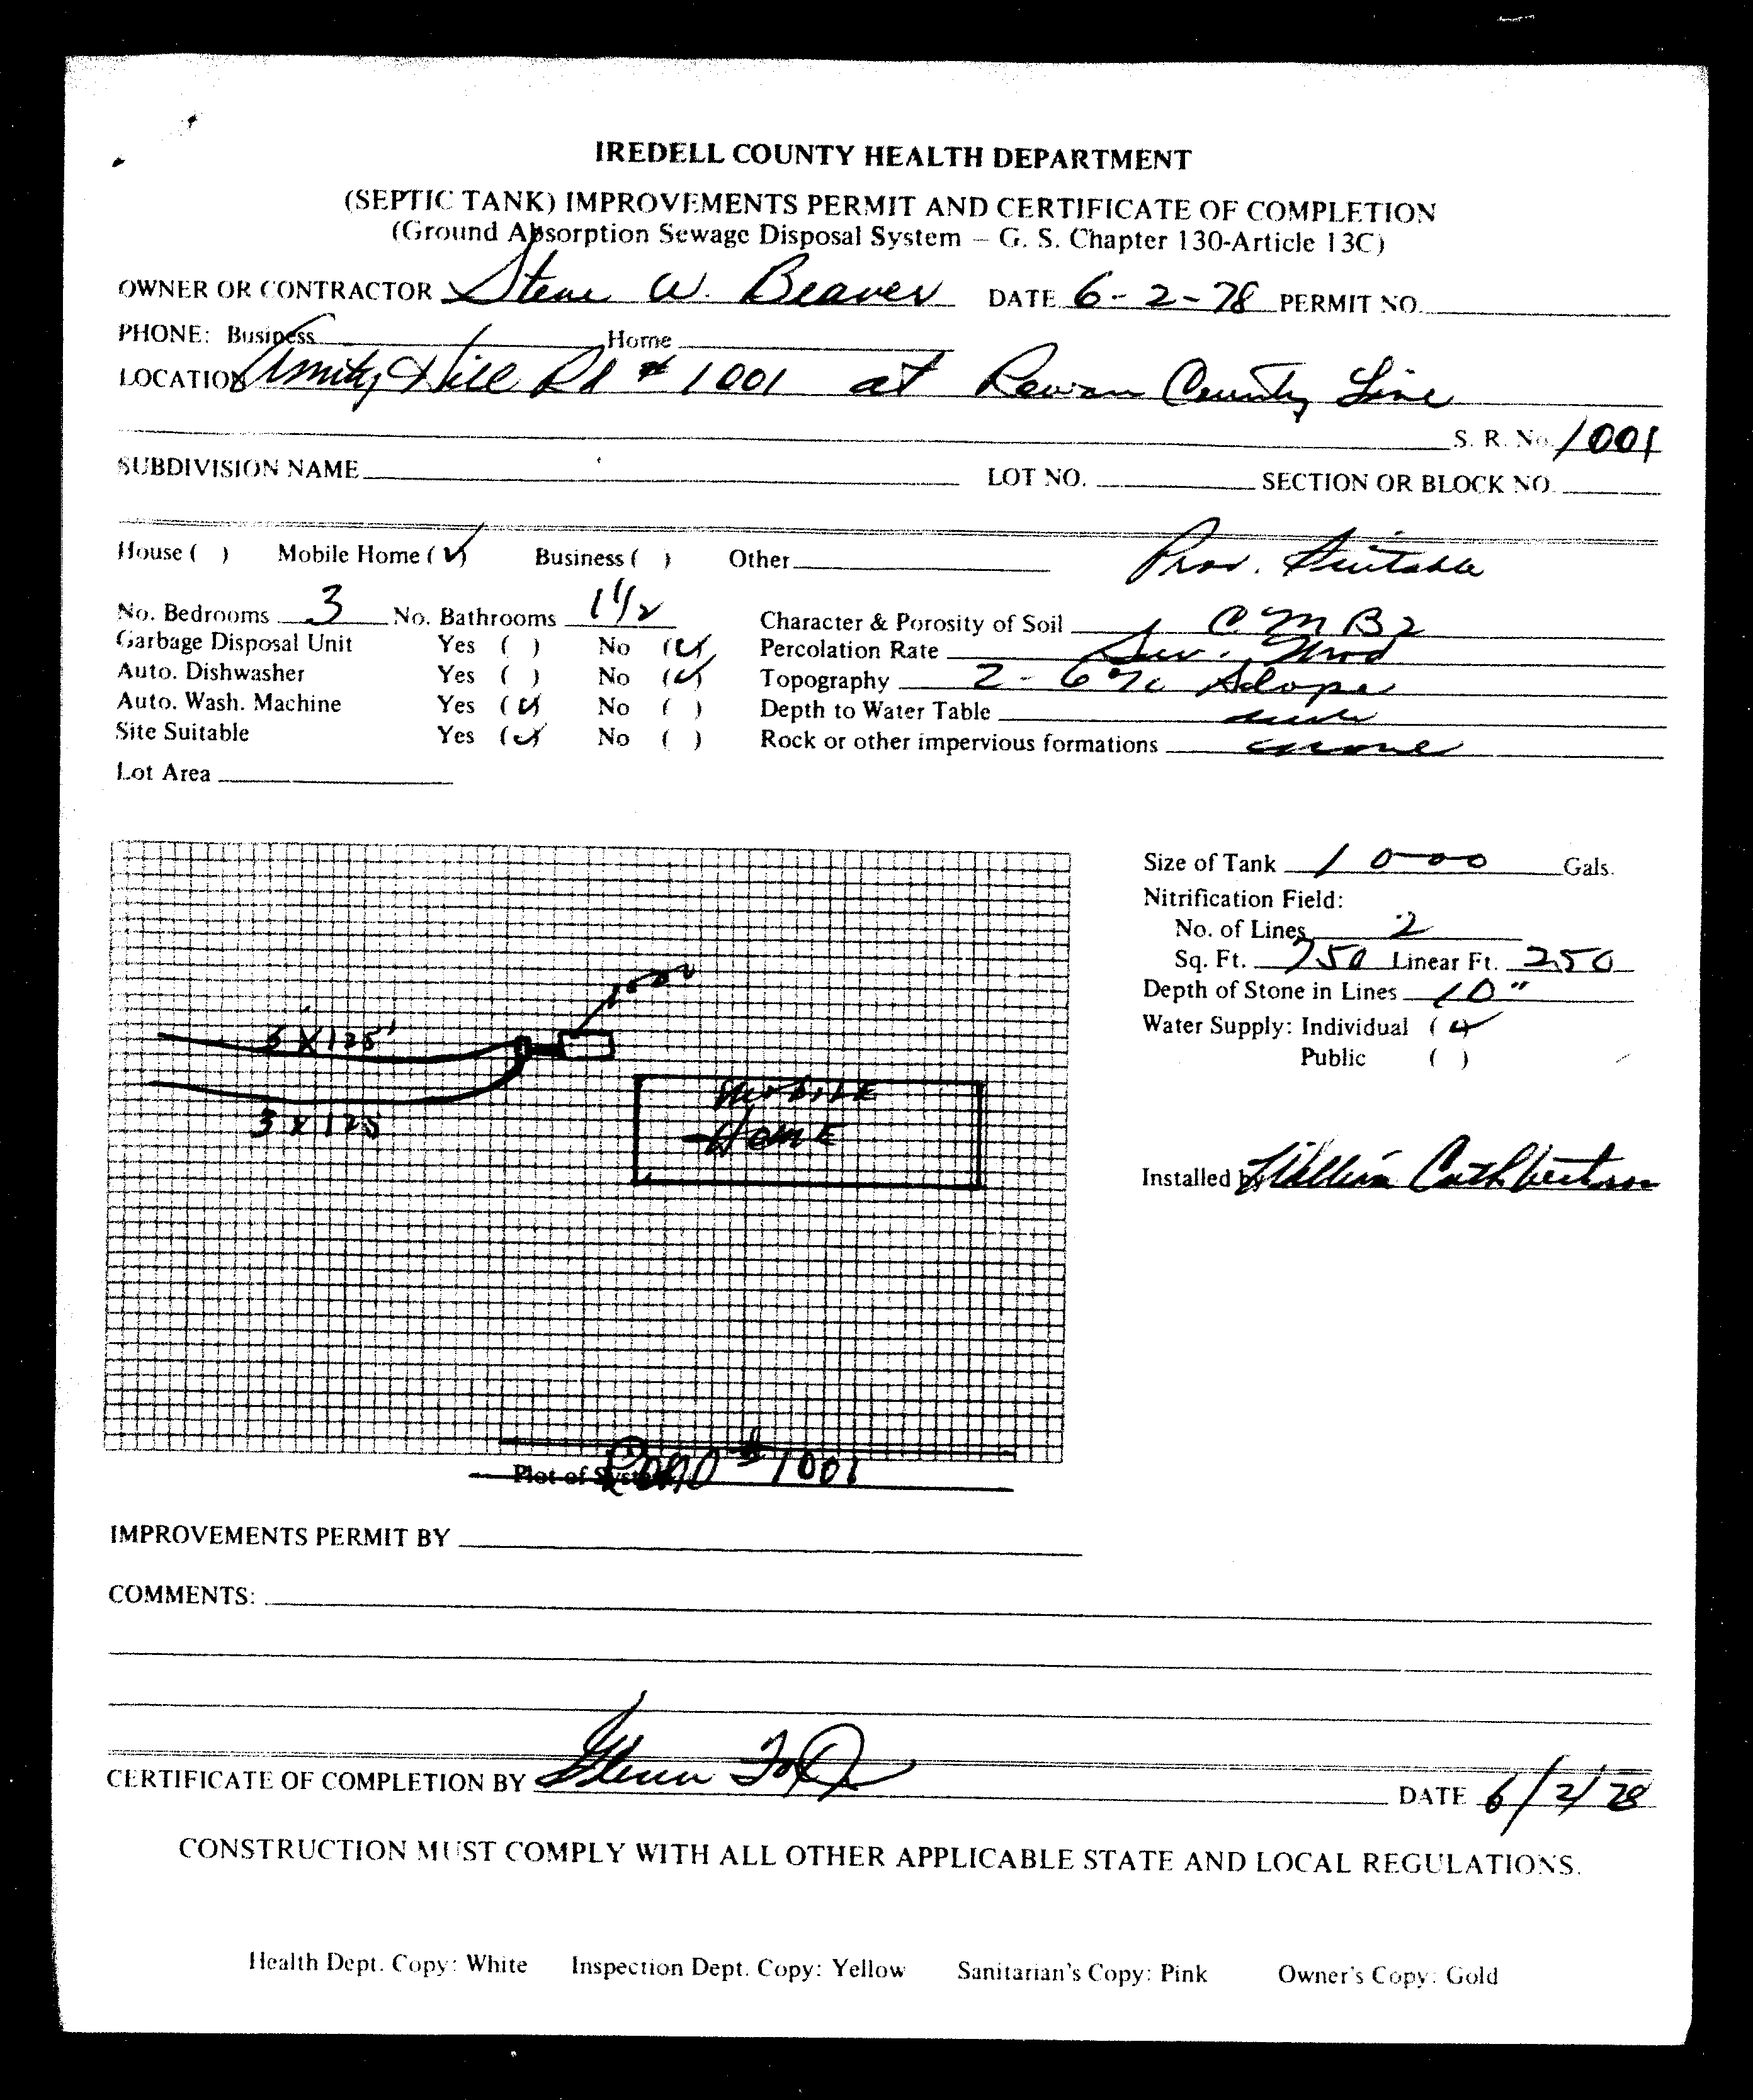 IREDELL COUNTY HEALTH DEPARTMENT
(SEPTIC TANK) IMPROVEMENTS PERMIT AND CERTIFICATE OF COMPLETION
(Ground Absorption Sewage Disposal System – G. S. Chapter 130-Article 13C)
OWNER OR CONTRACTOR Steve W. Beaver DATE 6-2-78 PERMIT NO.
PHONE: Business Home
LOCATION Amity Hill Rd # 1001 at Rowan County Line
S. R. No. 1001
SUBDIVISION NAME LOT NO. SECTION OR BLOCK NO.
House ( ) Mobile Home (✓) Business ( ) Other Prov. Suitable
No. Bedrooms 3 No. Bathrooms 1 1/2 Character & Porosity of Soil CMB2
Garbage Disposal Unit Yes ( ) No (✓) Percolation Rate Mod
Auto. Dishwasher Yes ( ) No (✓) Topography 2-6% Slope
Auto. Wash. Machine Yes (✓) No ( ) Depth to Water Table
Site Suitable Yes (✓) No ( ) Rock or other impervious formations none
Lot Area
Size of Tank 1000 Gals.
Nitrification Field:
No. of Lines 2
Sq. Ft. 750 Linear Ft. 250
Depth of Stone in Lines 10"
Water Supply: Individual (✓)
Public ( )
1000
3 X 125'
3 X 125
MOBILE
HOME
Installed by William Cuthbertson
Plot of System
Road #1001
IMPROVEMENTS PERMIT BY
COMMENTS:
CERTIFICATE OF COMPLETION BY Glenn DATE 6/2/78
CONSTRUCTION MUST COMPLY WITH ALL OTHER APPLICABLE STATE AND LOCAL REGULATIONS.
Health Dept. Copy: White Inspection Dept. Copy: Yellow Sanitarian's Copy: Pink Owner's Copy: Gold